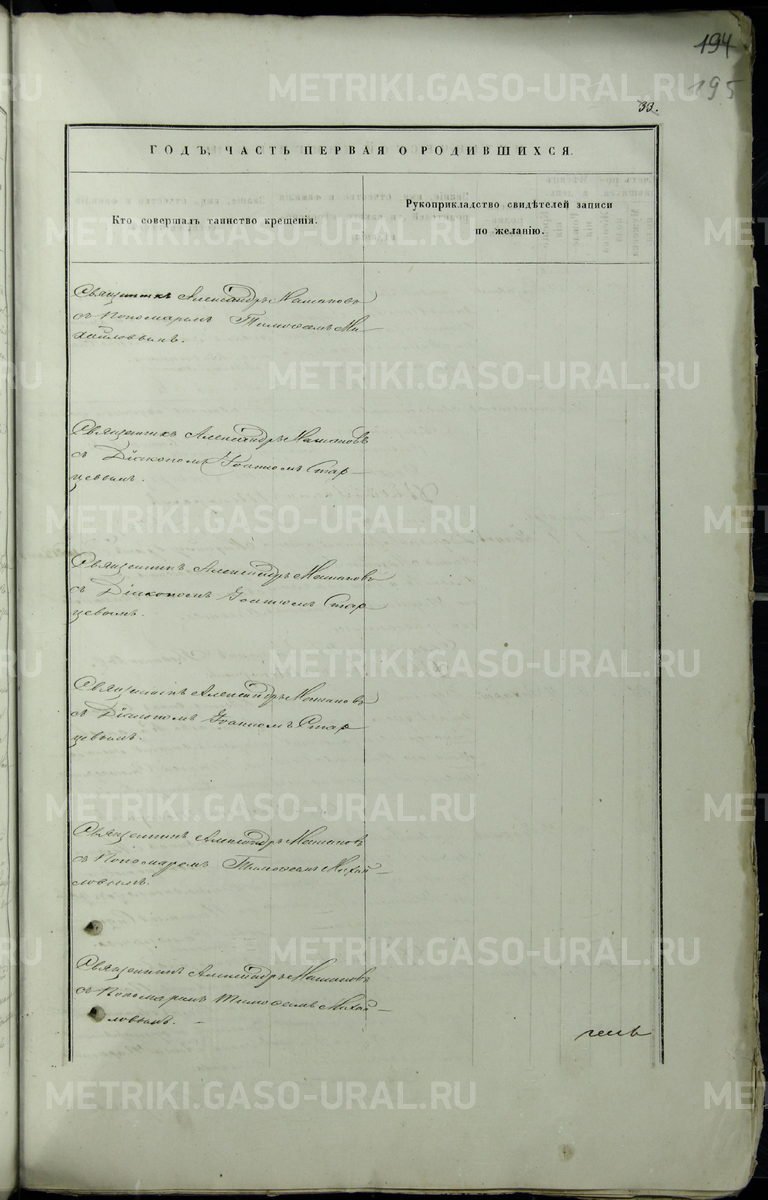 194
195
33.
ГОДЪ, ЧАСТЬ ПЕРВАЯ О РОДИВШИХСЯ.
Кто совершалъ таинство крещенія.
Рукоприкладство свидѣтелей записи
по желанію.
Священникъ Александръ
съ Пономаремъ Тимофеемъ Ми
хайловымъ.
Священникъ Александръ
съ Діакономъ Іоанномъ Стар-
цевымъ.
Священникъ Александръ
съ Діакономъ Іоанномъ Стар
цевымъ.
Священникъ Александръ
съ Діакономъ Іоанномъ Стар
цевымъ.
Священникъ Александръ
съ Пономаремъ Тимофеемъ Михай-
ловымъ.
Священникъ Александръ
съ Пономаремъ Тимофеемъ Михай-
ловымъ. -
METRIKI.GASO-URAL.RU